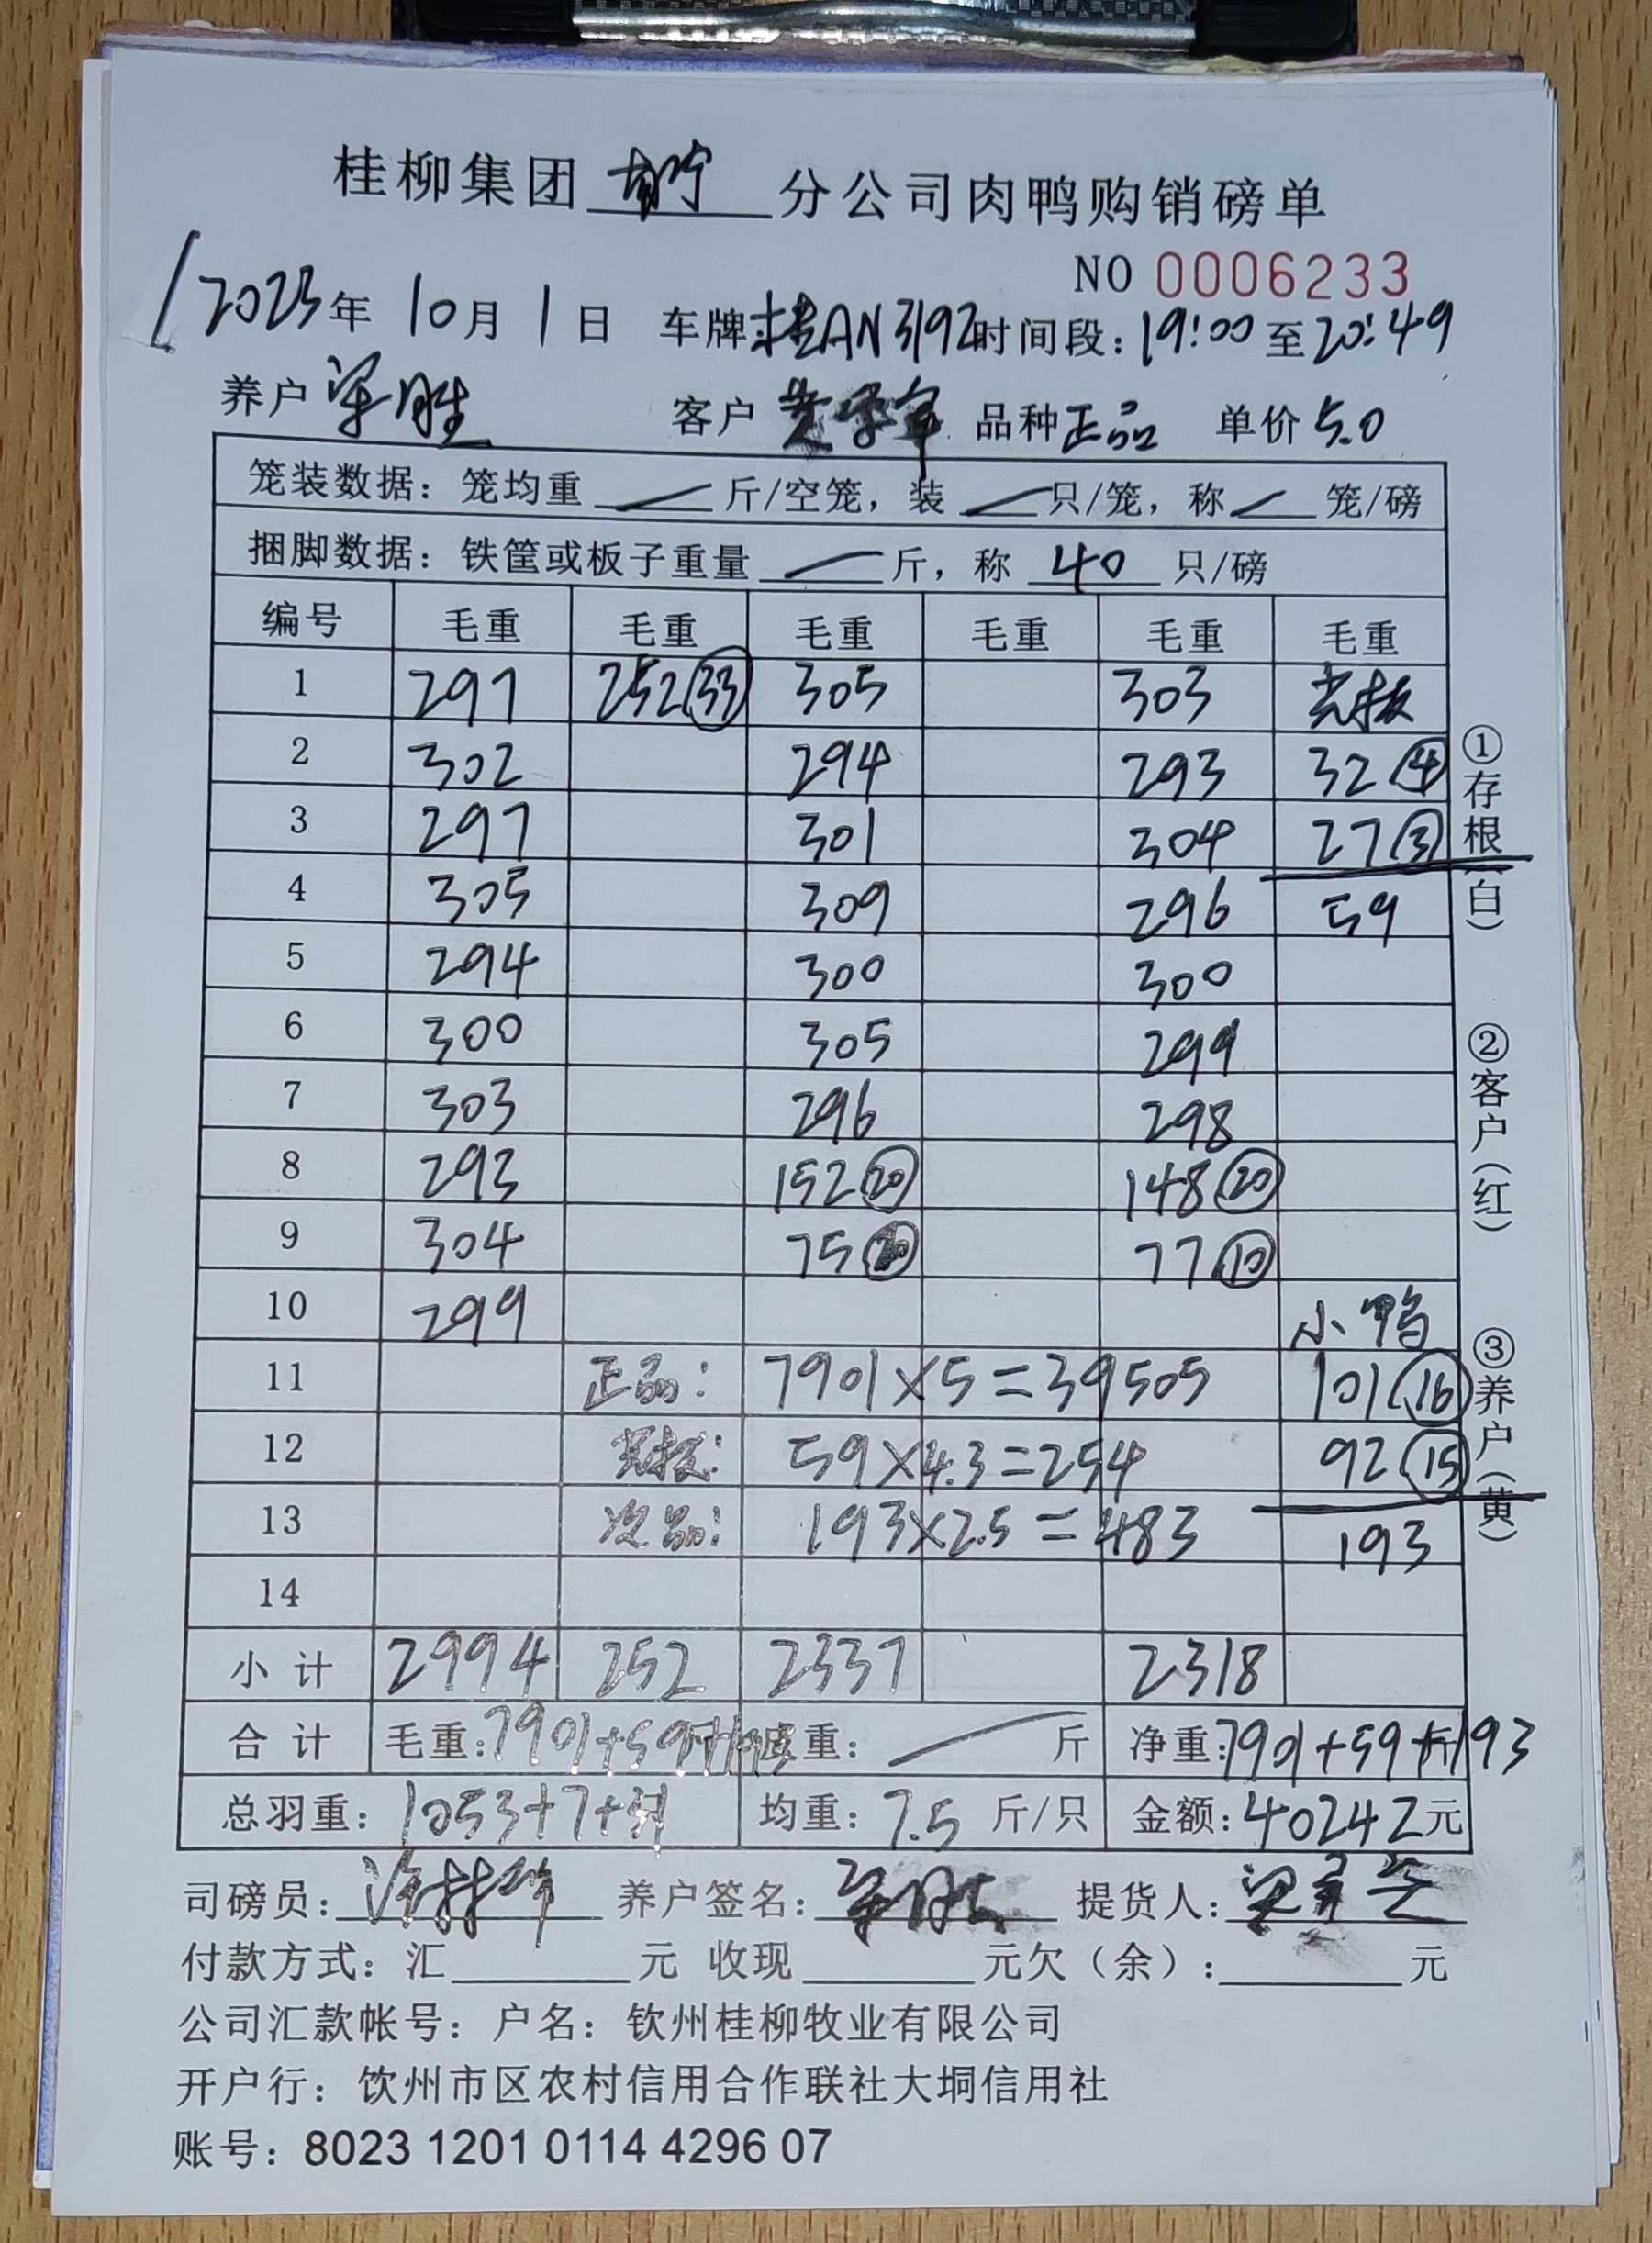 桂柳集团 南宁 分公司肉鸭购销磅单
NO 0006233
2023年 10月 1日 车牌:桂AN3192 时间段:19:00至20:49
养户 胜 客户 黄 品种 正品 单价 5.0
笼装数据:笼均重 — 斤/空笼,装 — 只/笼,称 — 笼/磅
捆脚数据:铁筐或板子重量 — 斤,称 40 只/磅
编号 毛重 毛重 毛重 毛重 毛重 毛重
1 297 252 33 305 303 光板
2 302 294 293 32 4
3 297 301 304 27 3
4 305 309 296 59
5 294 300 300
6 300 305 299
7 303 296 298
8 293 152 20 148 20
9 304 75 77 10
10 299 小鸭
11 正品: 7901×5=39505 101 16
12 光板: 59×4.3=254 92 15
13 次品: 193×2.5=483 193
14
小计 2994 252 2337 2318
合计 毛重:7901+59+193 皮重: — 斤 净重:7901+59+193斤
总羽重:1053+7+31 均重:7.5 斤/只 金额:40242元
司磅员: 养户签名: 胜 提货人:
付款方式:汇 元 收现 元欠(余): 元
公司汇款帐号:户名:钦州桂柳牧业有限公司
开户行:饮州市区农村信用合作联社大垌信用社
账号:8023 1201 0114 4296 07
①存根(白)
②客户(红)
③养户(黄)